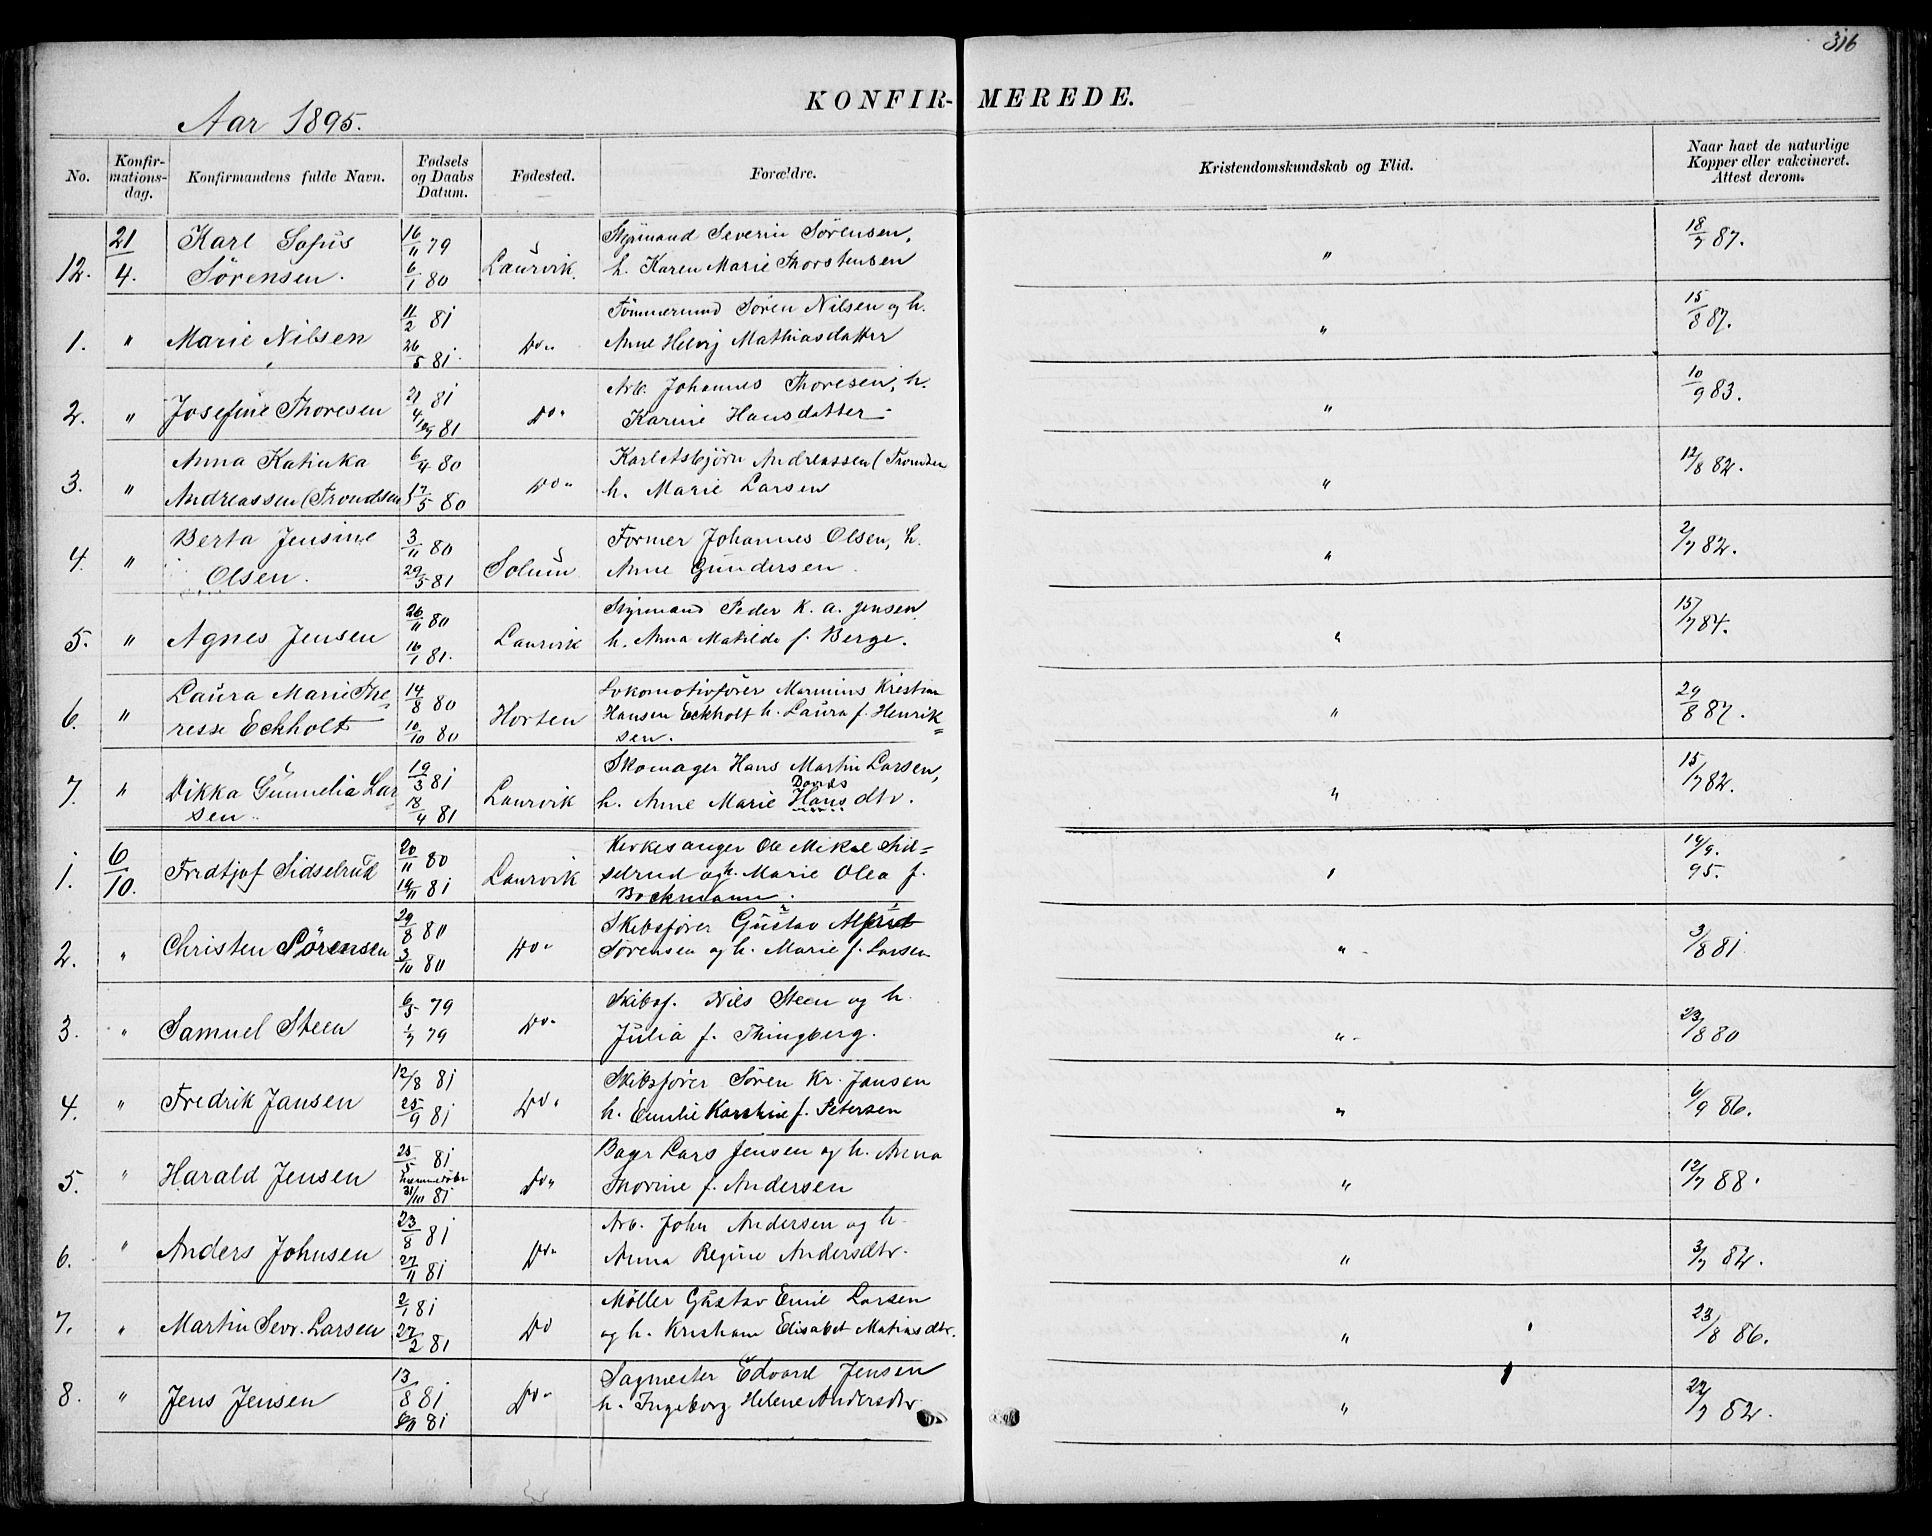 316
KONFIR- MEREDE.
Aar 1895.
No. Konfir-mations-dag. Konfirmandens fulde Navn. Fødsels og Daabs Datum. Fødested. Forældre. Kristendomskundskab og Flid. Naar havt de naturlige Kopper eller vakcineret. Attest derom.
12. 21/4. Karl Sofus Sørensen. 16/11 79 6/1 80 Laurvik Styrmand Severin Sørensen, h. Karen Marie Thorstensen " 18/7 87.
1. " Marie Nilsen 11/2 81 26/5 81. Do" Tømmermd Søren Nilsen og h. Anne Helvig Mathiasdatter " 15/8 87.
2. " Josefine Thoresen 81 81 Do" Arb. Johannes Thoresen, h. Karine Hansdatter " 10/9 83.
3. " Anna Katinka Andreassen (Trondsen) 6/4 80 17/5 80 Do" Karl Asbjørn Andreassen (Trondsen h. Marie Larsen " 12/8 82.
4. " Berta Jensine Olsen. 3/11 80 29/5 81 Solum Former Johannes Olsen, h. Anne Gundersen. " 2/7 82.
5. " Agnes Jensen 26/11 80 16/1 81. Laurvik Styrmand Peder K. A. Jensen h. Anna Matilde f. Berge. " 15/7 84.
6. " Laura Marie The= resse Eckholt 14/8 80 10/10 80 Horten Lokomotivfører Marinius Kristian Hansen Eckholt h. Laura f. Henrik= sen. " 29/8 87.
7. " Dikka Gunnelia Lar sen.. 19/3 81 18/4 81 Laurvik Skomager Hans Martin Larsen, h. Anne Marie Hans Davids dtr. " 15/7 82.
1. 6/10. Fridtjof Sidselrud 20/11 80 81 Laurvik Kirkesanger Ole Mikal Sid= selrud og h. Marie Olea f. Bockmann. " 19/9. 95.
2. " Christen Sørensen 29/8 80 3/10 80 Do" Skibsfører Gustav Alfred Sørensen og h. Marie f. Larsen " 3/8 81
3. " Samuel Steen 6/5 79 1/7 79 Do" Skibsf. Nils Steen og h. Julia f. Thingberg. " 23/8 80
4. " Fredrik Jansen 12/8 81 25/9 81 Do" Skibsfører Søren Kr. Jansen h. Emilie Karstine f. Petersen " 6/9 86.
5. " Harald Jensen 25/5 81 hjemmedøbt 31/10 81 Do" Bager Lars Jensen og h. Anna Thorine f. Andersen " 12/7 88.
6. " Anders Johnsen 23/8 81 27/11 81 Do" Arb. John Andersen og h. Anna Regine Andersdtr. " 3/7 82.
7. " Martin Sevr. Larsen 2/1 81 27/2 81 Do Møller Gustav Emil Larsen og h. Kristiane Elisabet Matiasdtr. " 23/8 86.
8. " Jens Jensen 13/8 81 81 Do" Sagmester Edvard Jensen h. Ingeborg Helene Andersdtr " 22/7 82.